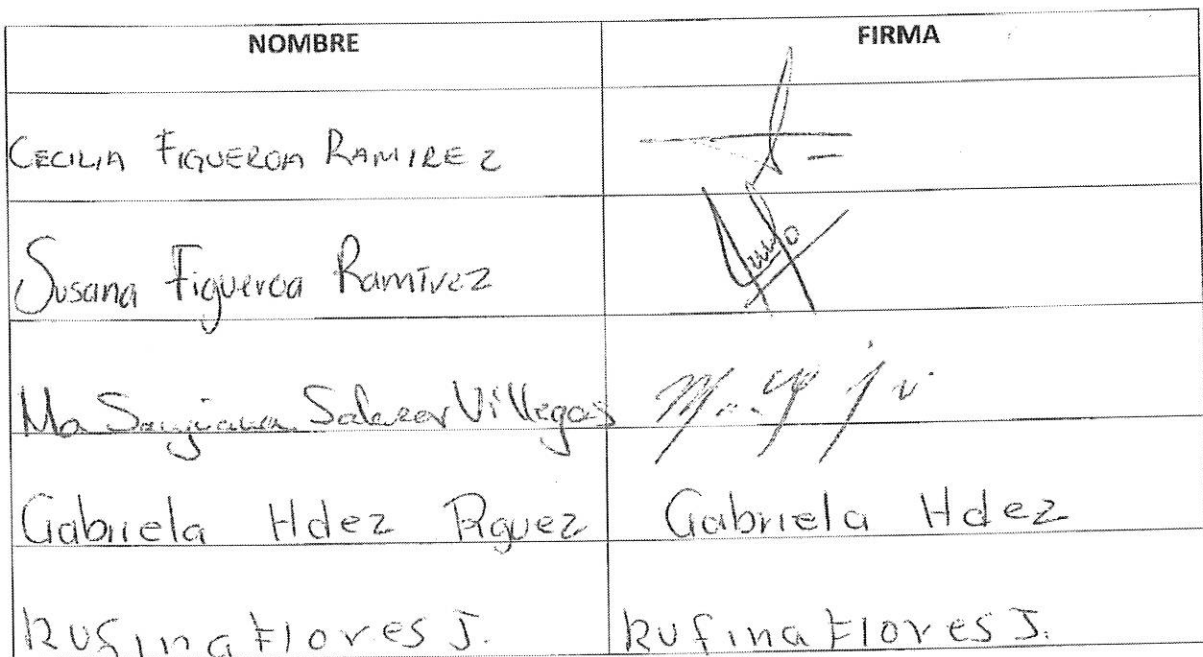 NOMBRE FIRMA
CECILIA FIGUEROA RAMIREZ
Susana Figueroa Ramírez
Ma Sanjuana Salazar Villegas
Gabriela Hdez Rguez Gabriela Hdez
Rufina Flores J. Rufina Flores J.